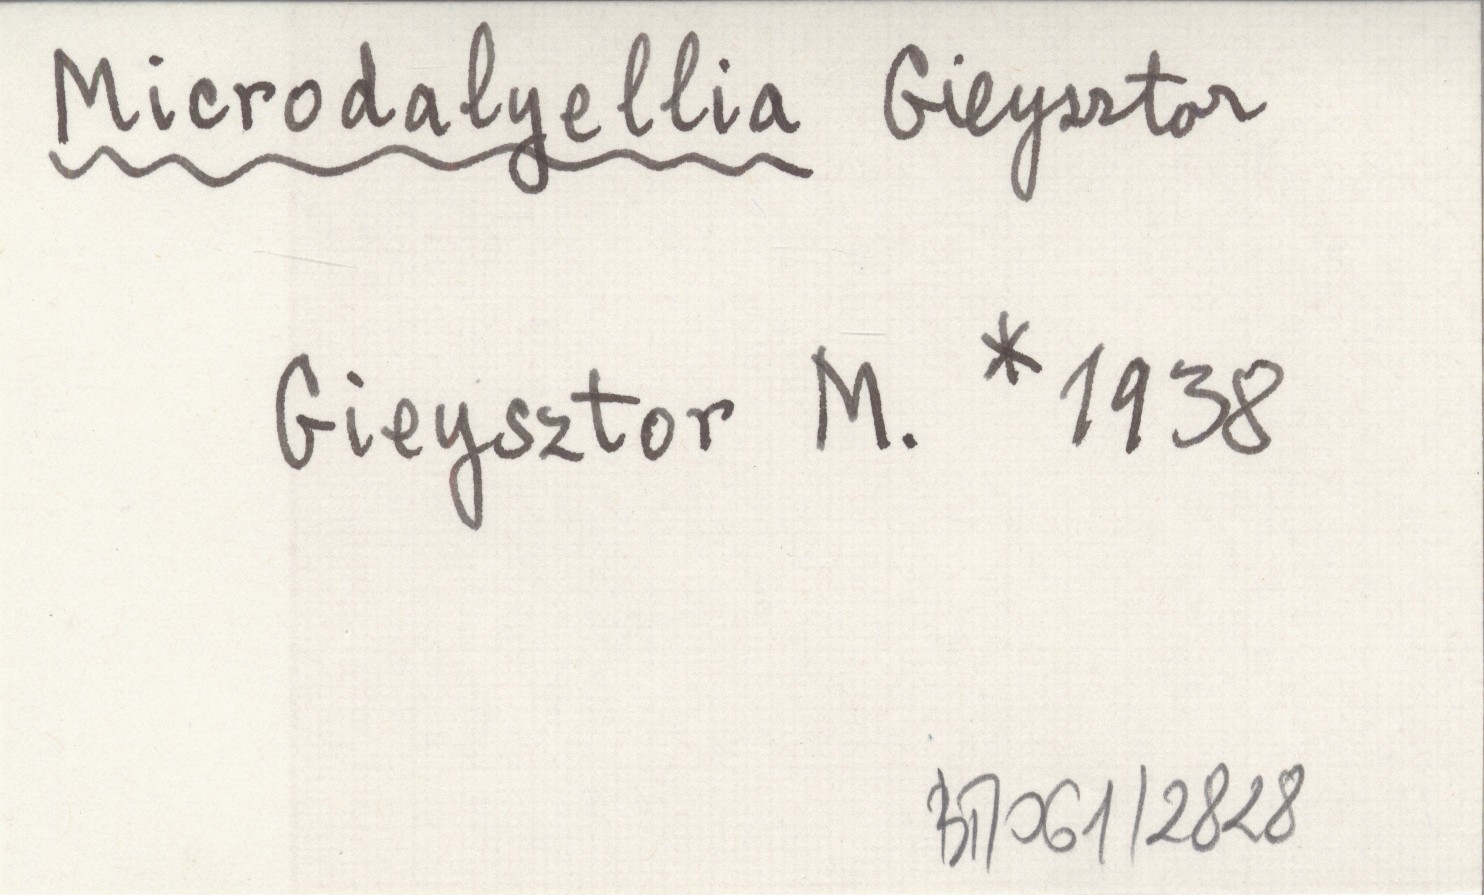 Microdalyellia Gieysztor
Gieysztor M. * 1938
ВП061/2828